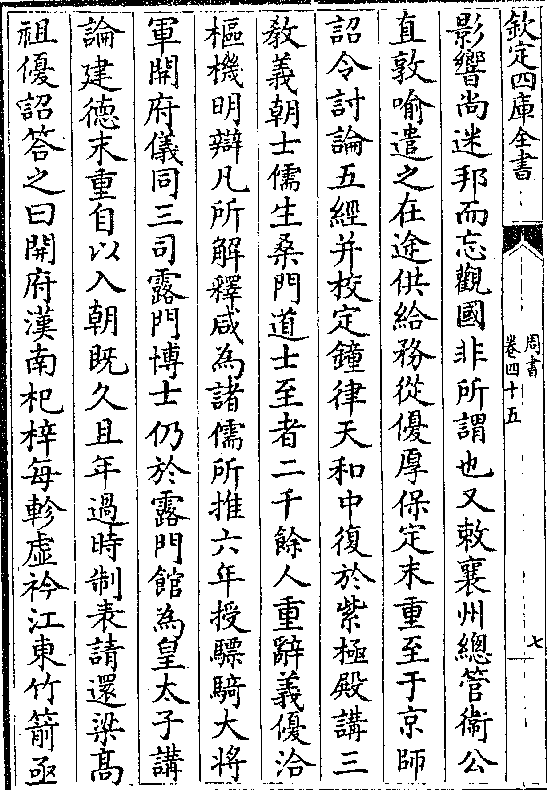 欽定四庫全書
周書
卷四十五
七
影響尚迷邦而忘觀國非所謂也又敕襄州總管衞公
直敦喻遣之在途供給務從優厚保定末重至于京師
詔令討論五經并校定鐘律天和中復於紫極殿講三
教義朝士儒生桑門道士至者二千餘人重辭義優洽
樞機明辯凡所解釋咸為諸儒所推六年授驃騎大将
軍開府儀同三司露門博士仍於露門館為皇太子講
論建德末重自以入朝既久且年過時制表請還梁髙
祖優詔答之曰開府漢南杞梓每軫虛衿江東竹箭亟